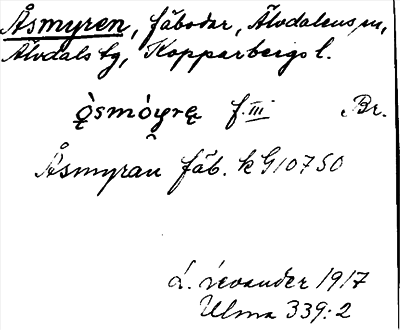 Åsmyren, fäbodar, Älvdalens sn,
Älvdals tg, Kopparbergs l.
ò̜smòyrę f. III Br.
Åsmyran fäb. k G107 SO
L. Levander 1917
Ulma 339:2